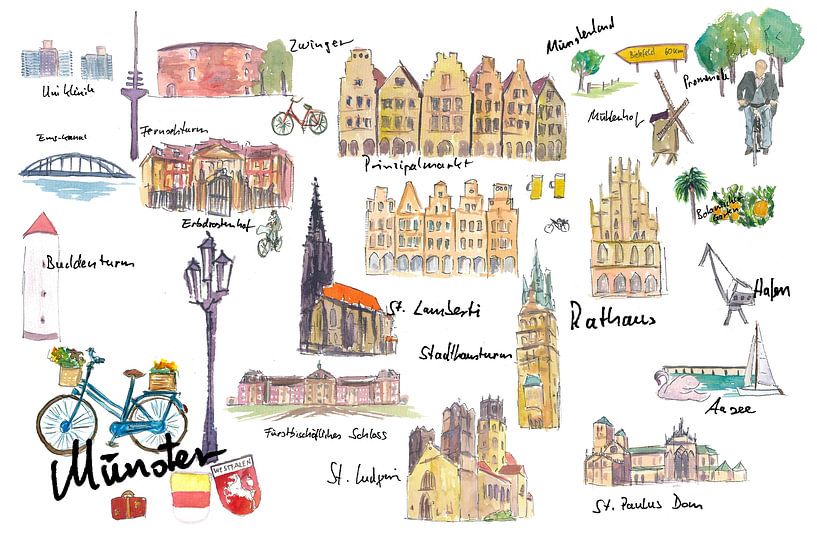 Uni Klinik
Zwinger
Münsterland
Bielefeld 60 km
Promenade
Fernsehturm
Ems-Kanal
Prinzipalmarkt
Mühlenhof
Erbdrostenhof
Botanischer
Garten
Buddenturm
Hafen
St. Lamberti
Rathaus
Stadthausturm
Aasee
Fürstbischöfliches Schloss
Münster
WESTFALEN
St. Ludgeri
St. Paulus Dom